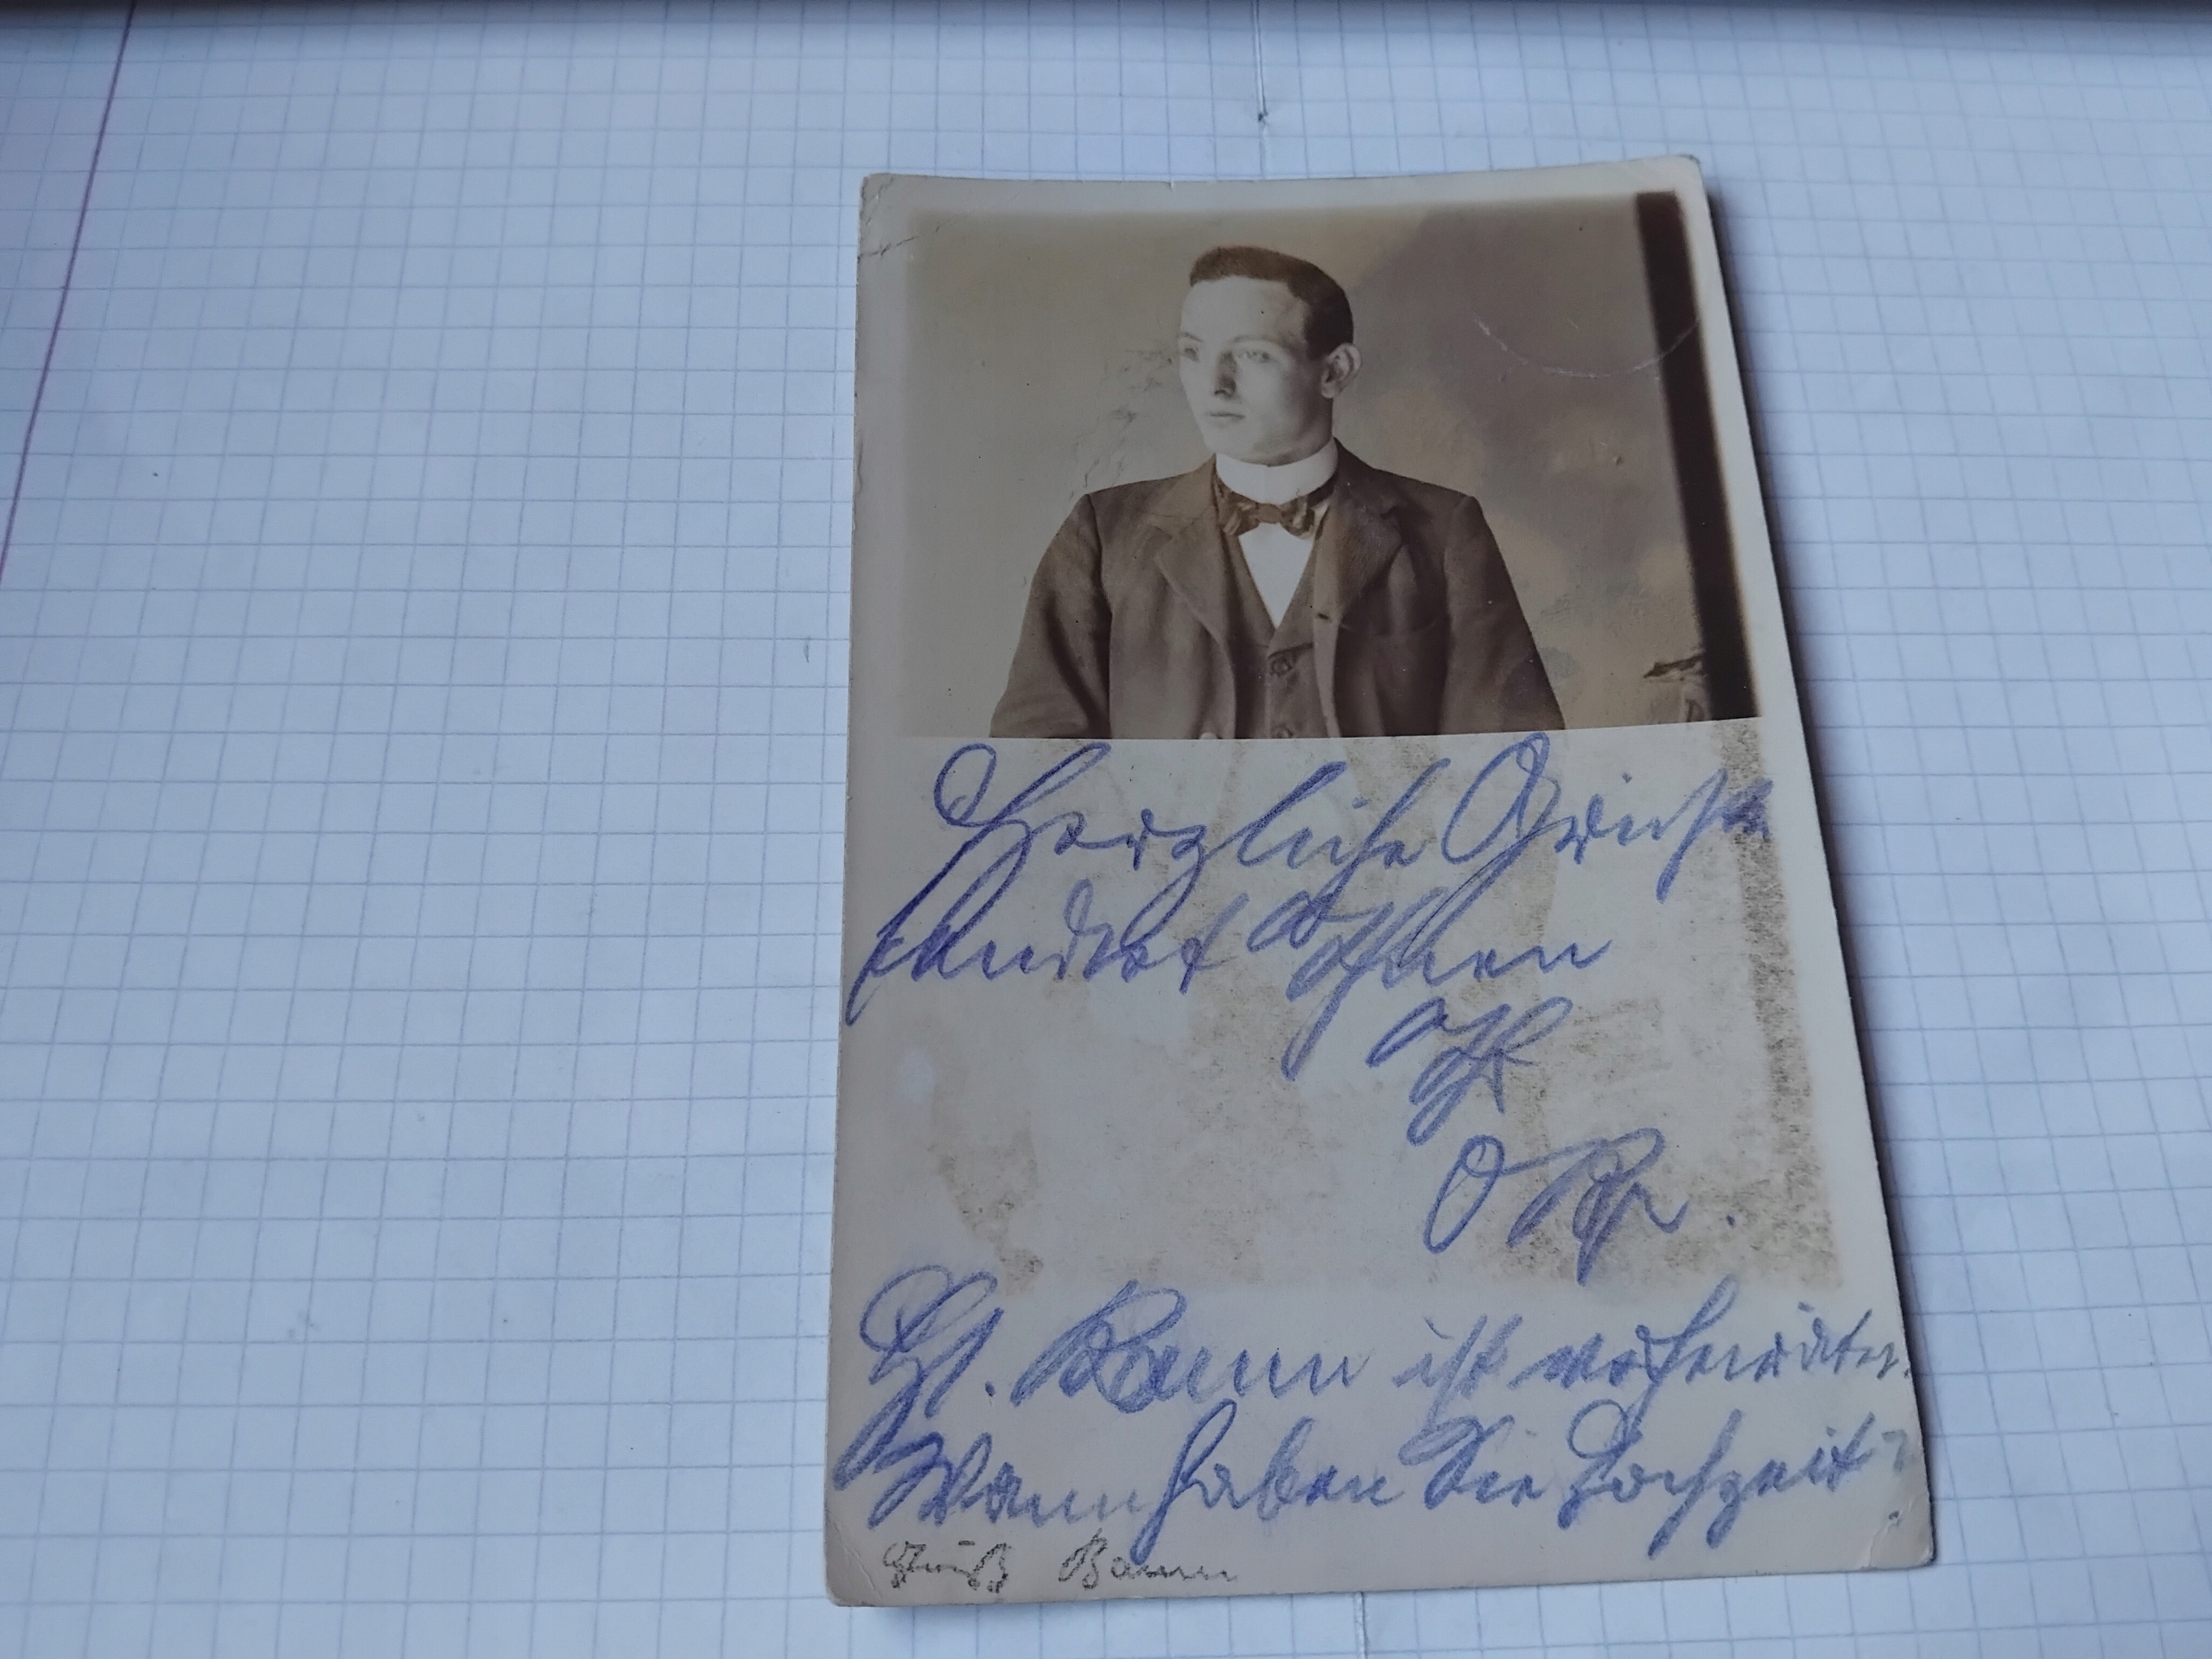 Herzliche Grüße
sendet Ihnen
Ihr
O
Baum ist verheiratet.
Wann haben Sie Hochzeit?
Gruß Baum